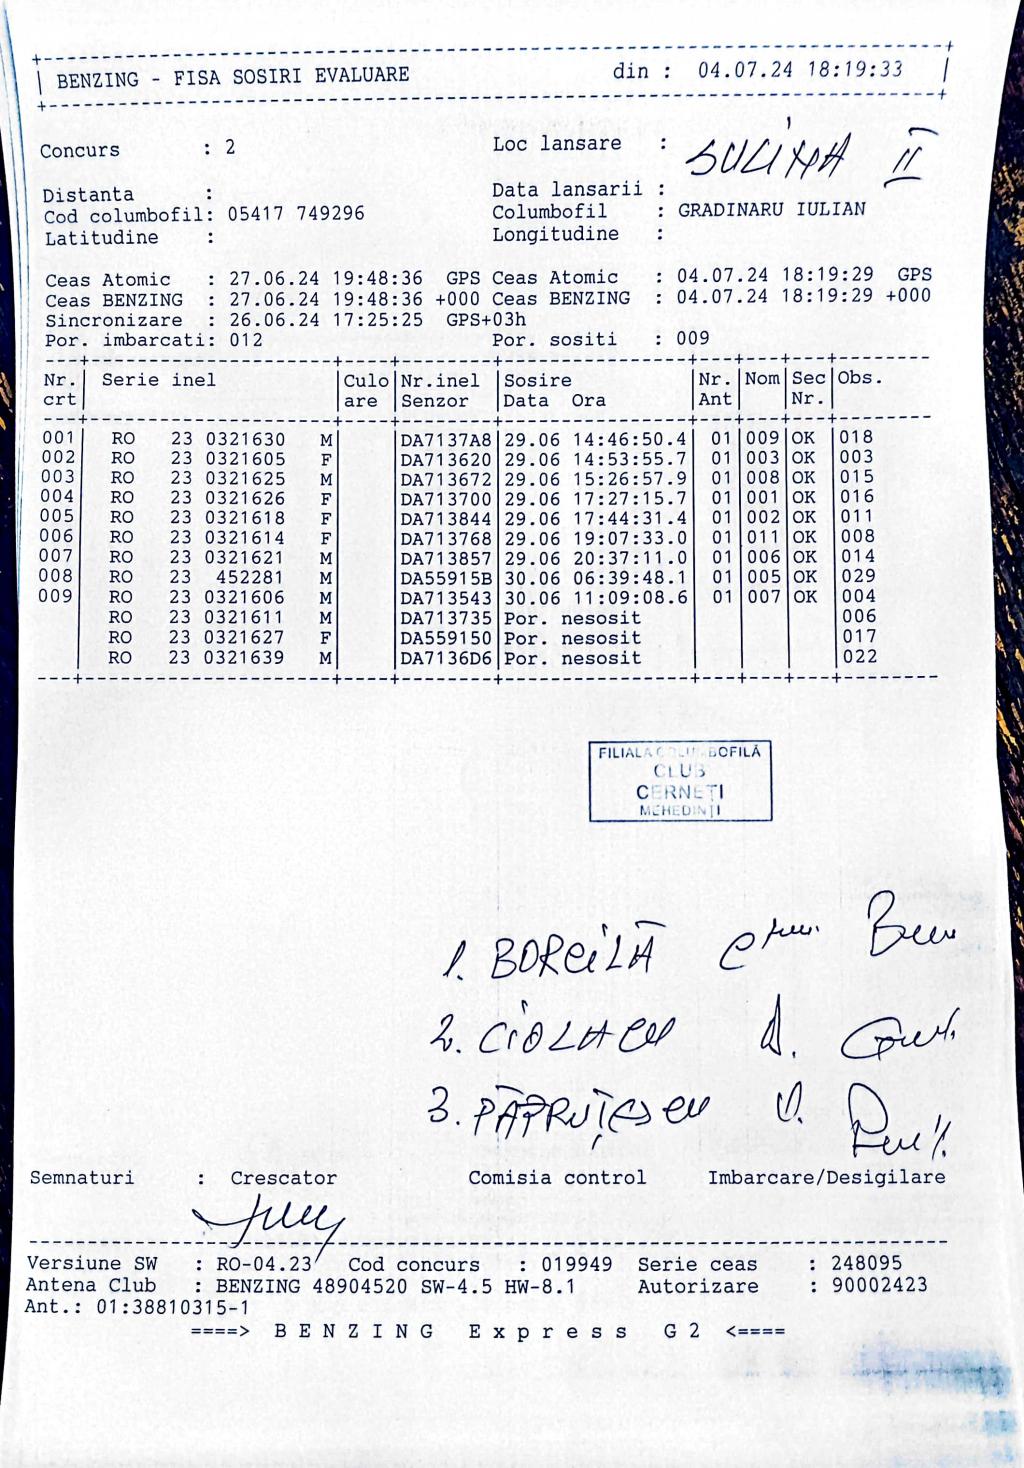 BENZING - FISA SOSIRI EVALUARE din : 04.07.24 18:19:33
Concurs : 2 Loc lansare : SULINA II
Distanta : Data lansarii :
Cod columbofil: 05417 749296 Columbofil : GRADINARU IULIAN
Latitudine : Longitudine :
Ceas Atomic : 27.06.24 19:48:36 GPS Ceas Atomic : 04.07.24 18:19:29 GPS
Ceas BENZING : 27.06.24 19:48:36 +000 Ceas BENZING : 04.07.24 18:19:29 +000
Sincronizare : 26.06.24 17:25:25 GPS+03h
Por. imbarcati: 012 Por. sositi : 009
Nr. Serie inel Culo Nr.inel Sosire Nr. Nom Sec Obs.
crt are Senzor Data Ora Ant Nr.
001 RO 23 0321630 M DA7137A8 29.06 14:46:50.4 01 009 OK 018
002 RO 23 0321605 F DA713620 29.06 14:53:55.7 01 003 OK 003
003 RO 23 0321625 M DA713672 29.06 15:26:57.9 01 008 OK 015
004 RO 23 0321626 F DA713700 29.06 17:27:15.7 01 001 OK 016
005 RO 23 0321618 F DA713844 29.06 17:44:31.4 01 002 OK 011
006 RO 23 0321614 F DA713768 29.06 19:07:33.0 01 011 OK 008
007 RO 23 0321621 M DA713857 29.06 20:37:11.0 01 006 OK 014
008 RO 23 452281 M DA55915B 30.06 06:39:48.1 01 005 OK 029
009 RO 23 0321606 M DA713543 30.06 11:09:08.6 01 007 OK 004
RO 23 0321611 M DA713735 Por. nesosit 006
RO 23 0321627 F DA559150 Por. nesosit 017
RO 23 0321639 M DA7136D6 Por. nesosit 022
FILIALA COLUMBOFILĂ
CLUB
CERNEȚI
MEHEDINȚI
1. BORCILĂ
2. CIOLACU
3. PĂPRUȚESCU V.
Semnaturi : Crescator Comisia control Imbarcare/Desigilare
Versiune SW : RO-04.23 Cod concurs : 019949 Serie ceas : 248095
Antena Club : BENZING 48904520 SW-4.5 HW-8.1 Autorizare : 90002423
Ant.: 01:38810315-1
====> B E N Z I N G E x p r e s s G 2 <====